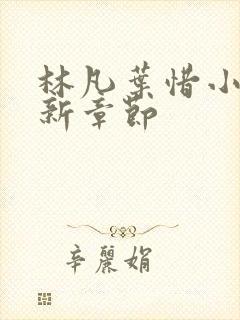 林凡葉惜小
新章節
辛麗娟